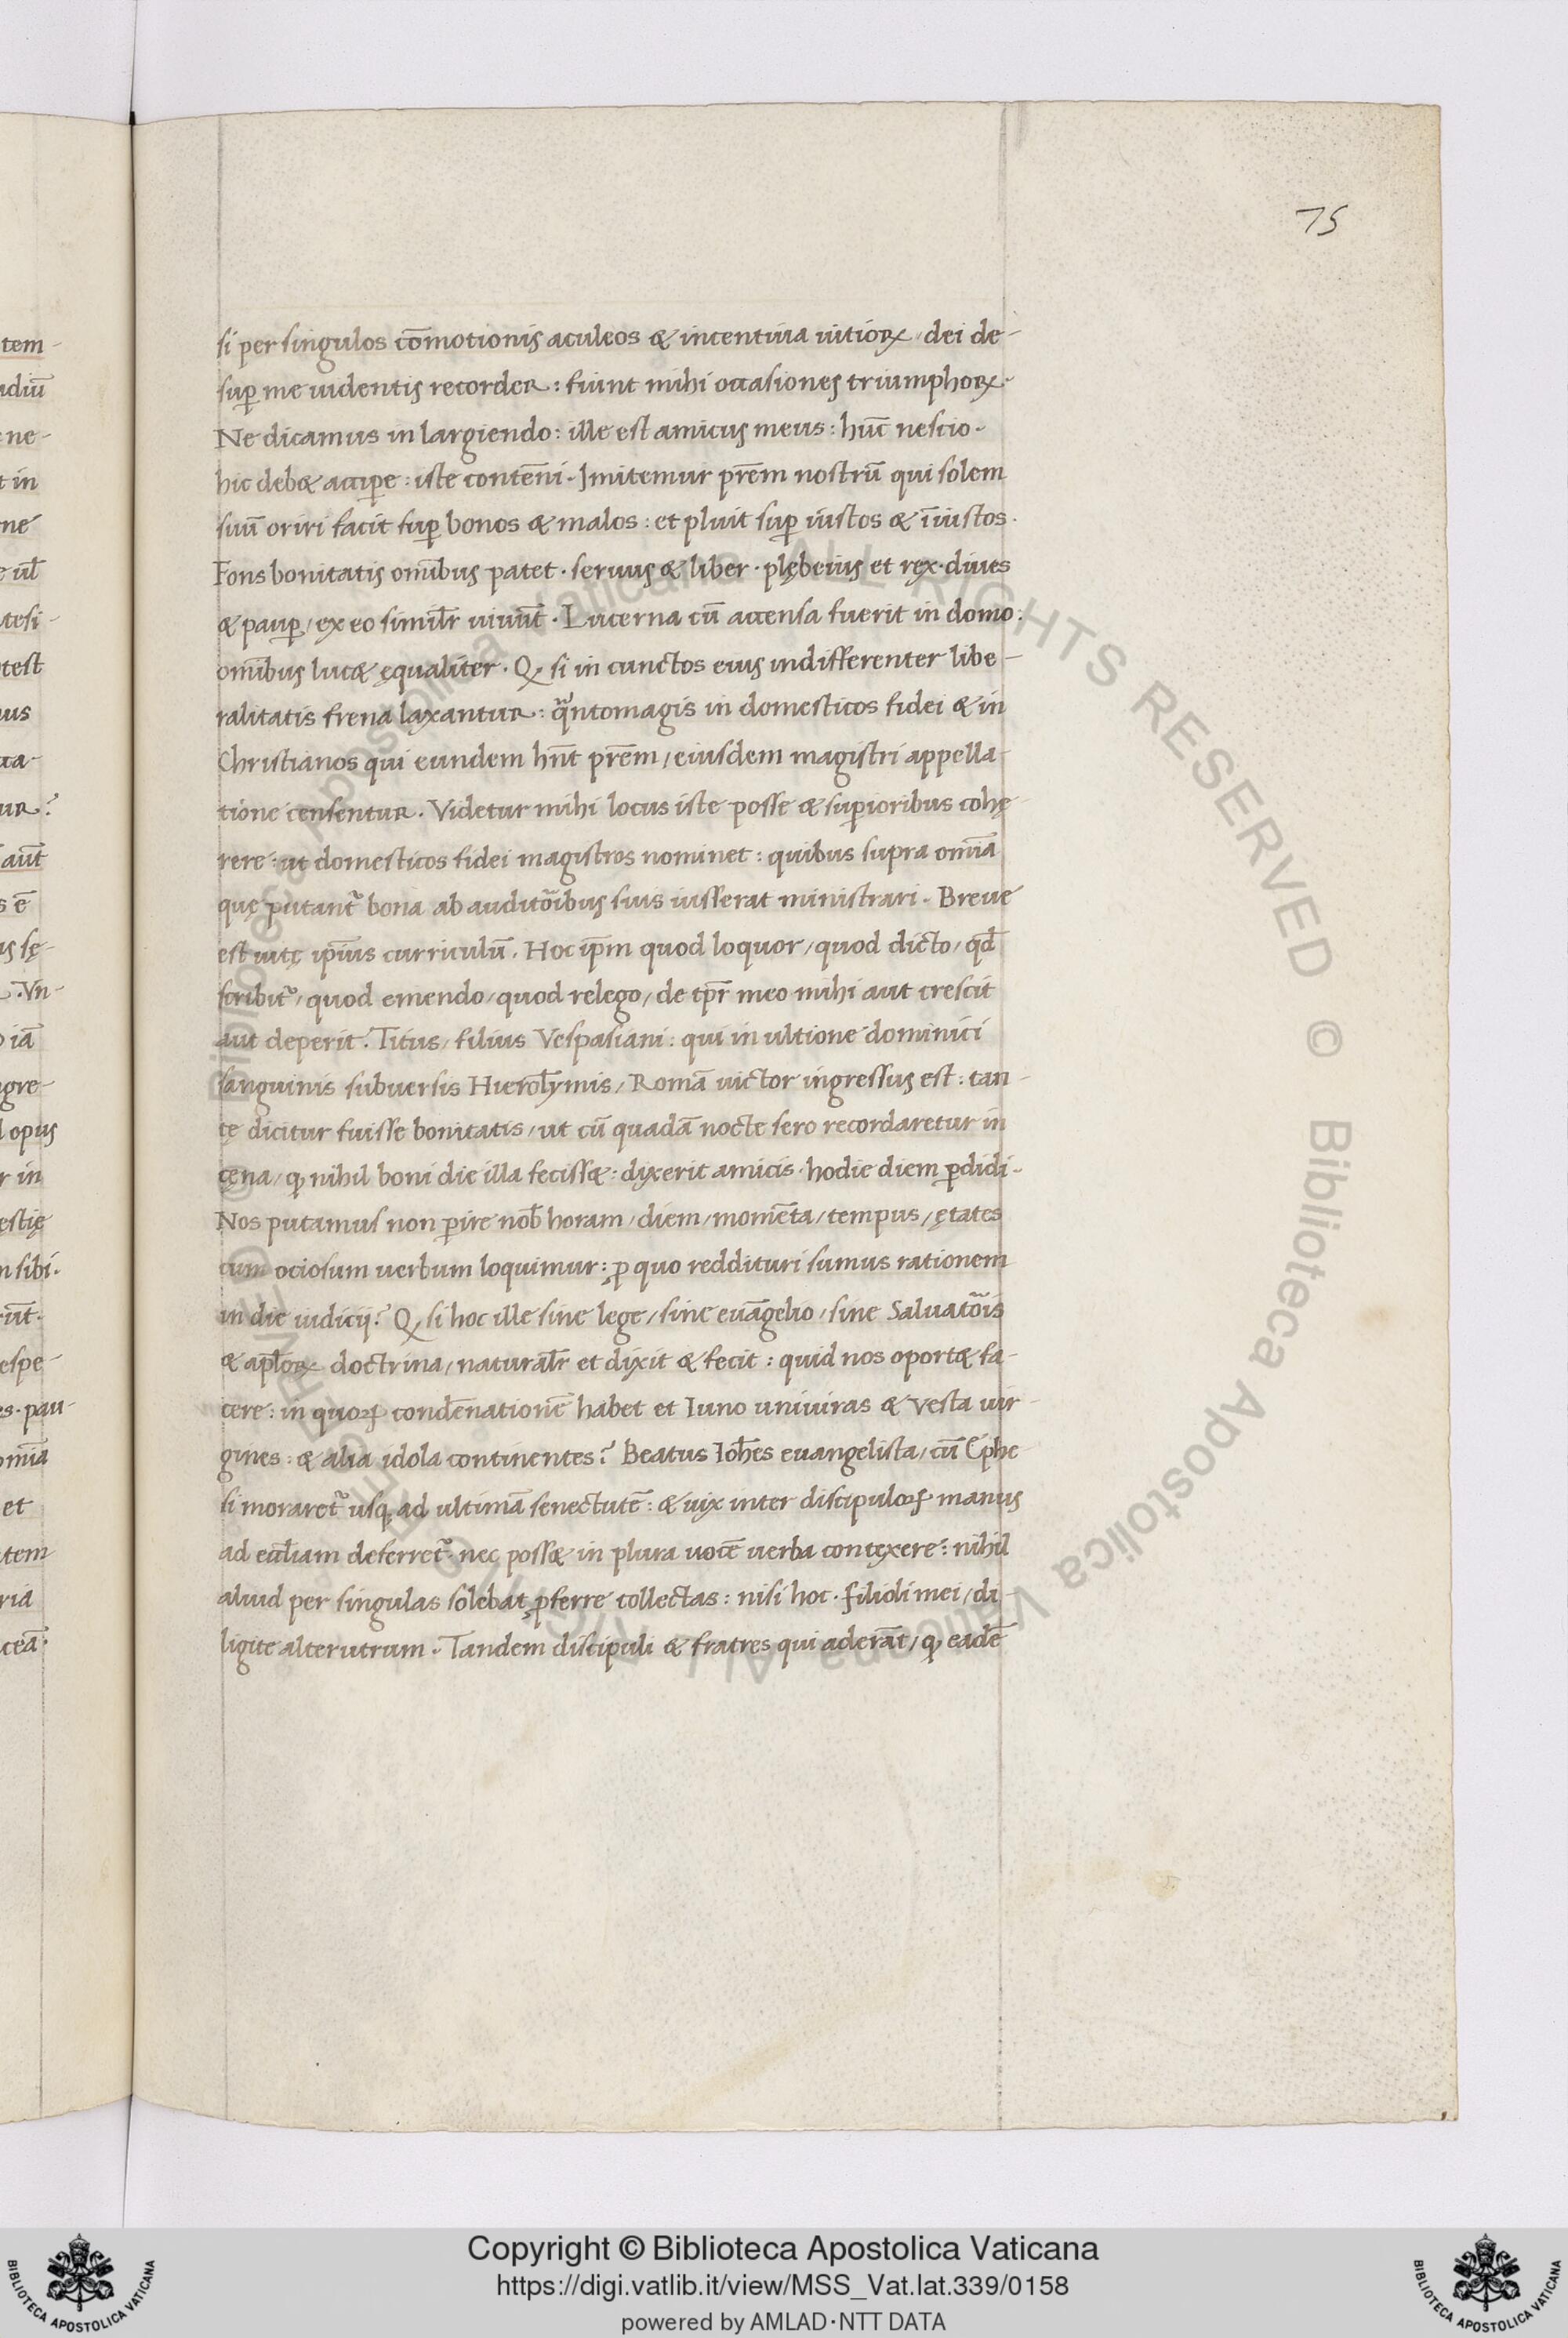 75
si per singulos cōmotionis aculeos & incentiua uitioꝝ dei de-
suꝑ me uidentis recorder: fiunt mihi occasiones triumphoꝝ.
Ne dicamus in largiendo: ille est amicus meus: hūc nescio.
hic deb& acciꝑe: iste contēni. Imitemur prēm nostrū qui solem
suū oriri facit suꝑ bonos & malos: et pluit suꝑ iustos & īiustos.
Fons bonitatis omībus patet. seruus & liber. plębeius et rex. diues
& pauꝑ/ ex eo similr̄ uiuūt. Lucerna cū accensa fuerit in domo:
omībus luc& ęqualiter. Qꝫ si in cunctos eius indifferenter libe-
ralitatis frena laxantur: qᵃntomagis in domesticos fidei & in
Christianos qui eundem hn̄t prēm/ eiusdem magistri appella-
tione censentur. Videtur mihi locus iste posse & suꝑioribus cohę-
rere: ut domesticos fidei magistros nominet: quibus supra omīa
quę putantᷣ bona ab auditōibus suis iusserat ministrari. Breue
est uitę ip̄ius curriculū. Hoc ip̄m quod loquor/ quod dicto/ qd̄
scribitᷣ/ quod emendo/ quod relego/ de tp̄r meo mihi aut crescit
aut deperit. Titus/ filius Vespasiani: qui in ultione dominici
sanguinis subuersis Hierosl̄ymis/ Romā uictor ingressus est: tan-
tę dicitur fuisse bonitatis/ ut cū quadā nocte sero recordaretur in
cęna/ ꝙ nihil boni die illa feciss&: dixerit amicis. hodie diem ꝑdidi.
Nos putamus non ꝑire nob̄ horam/ diem/ momēta/ tempus/ ętates
cum ociosum uerbum loquimur: ꝓ quo reddituri sumus rationem
in die iudicij? Qꝫ si hoc ille sine lege/ sine euāgelio/ sine Saluatōis
& apl̄oꝝ doctrina/ naturalr̄ et dixit & fecit: quid nos oport& fa-
cere: in quoꝝ condēnationē habet et Iuno uniuiras & Vesta uir-
gines: & alia idola continentes? Beatus Ioh̄es euangelista/ cū Ephe-
si moraretᷣ usqꝫ ad ultimā senectutē: & uix inter discipuloꝝ manus
ad eccl̄iam deferretᷣ. nec poss& in plura uocē uerba contęxere: nihil
aliud per singulas solebat ꝓferre collectas: nisi hoc. filioli mei/ di
ligite alterutrum. Tandem discipuli & fratres qui aderāt/ ꝙ eadē
Copyright © Biblioteca Apostolica Vaticana
https://digi.vatlib.it/view/MSS_Vat.lat.339/0158
powered by AMLAD·NTT DATA